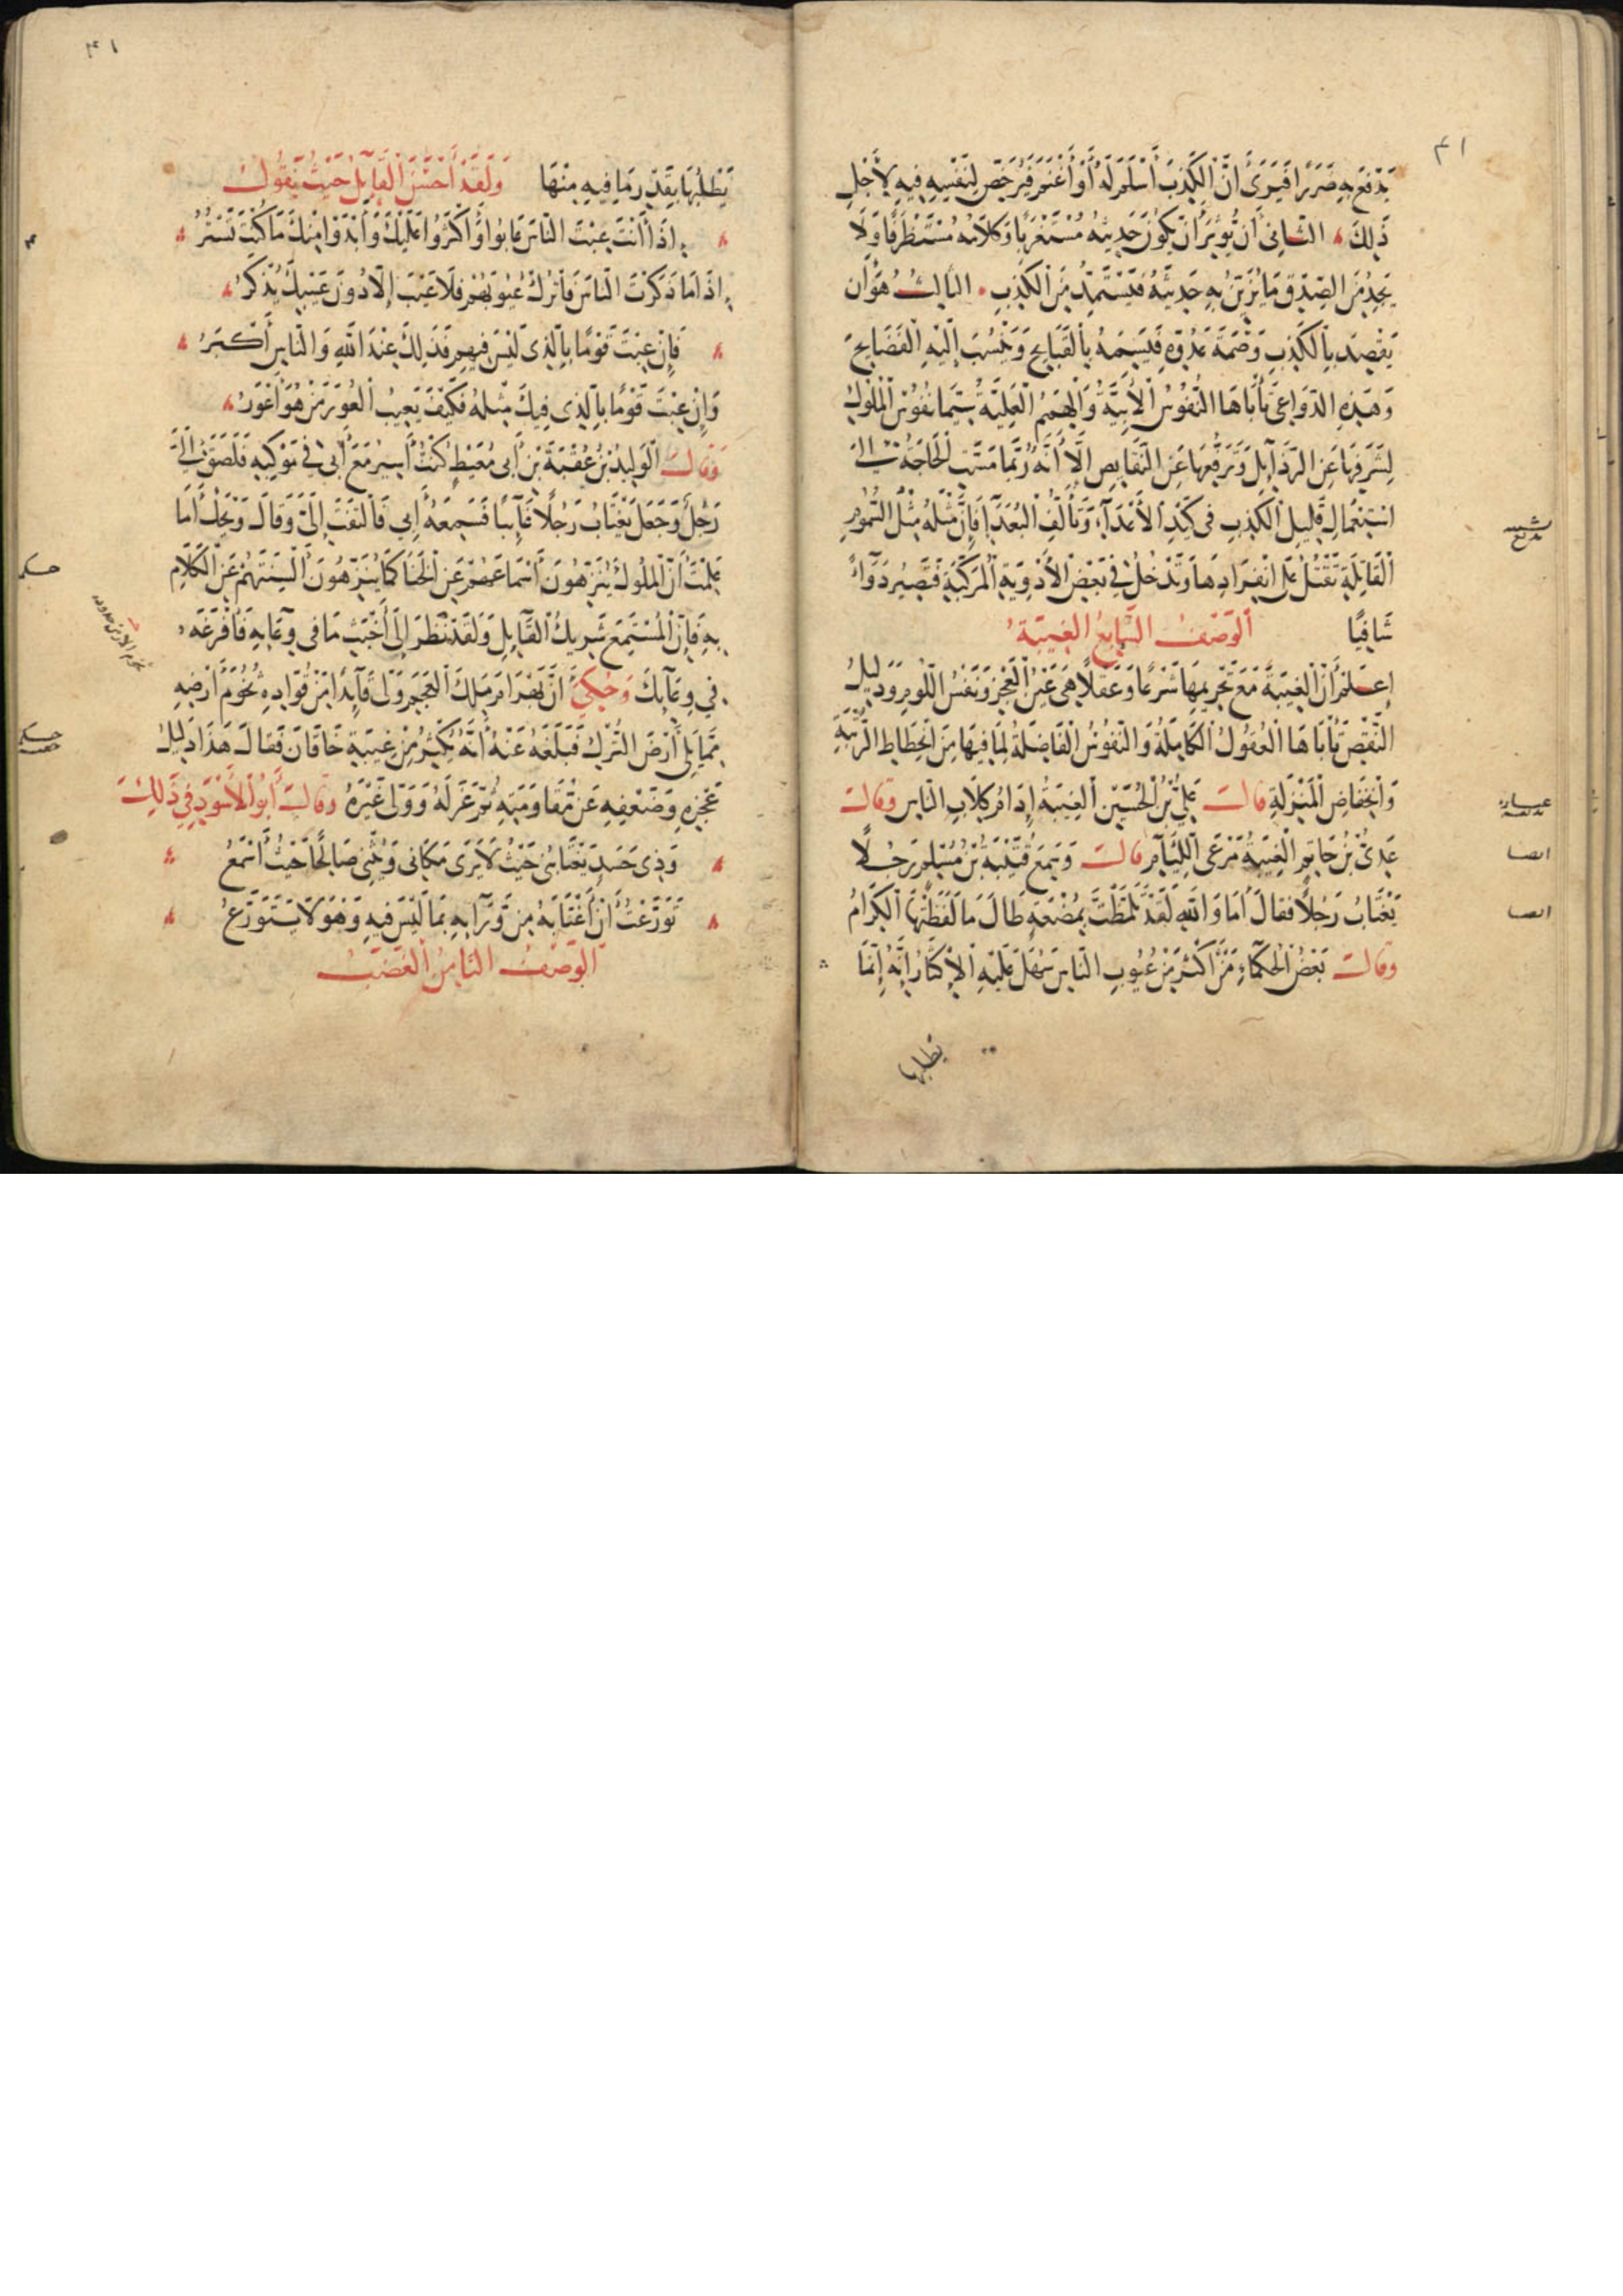 ٤١
يَدْفَعَ بِهِ ضَرَرًا فَيَرَى أَنَّ الْكَذِبَ أَسْلَمُ لَهُ أَوْ أَغْنَمُ فَيُرَخِّصَ لِنَفْسِهِ فِيهِ لِأَجْلِ
ذَلِكَ الثَّانِي أَنْ يُؤْثِرَ أَنْ يَكُونَ حَدِيثُهُ مُسْتَغْرَبًا وَكَلَامُهُ مُسْتَظْرَفًا وَلَا
يَجِدُ مِنَ الصِّدْقِ مَا يُزَيِّنُ بِهِ حَدِيثَهُ فَيَسْتَمِدُّ مِنَ الْكَذِبِ الثَّالِثُ هُوَ أَنْ
يَقْصِدَ بِالْكَذِبِ وَصْمَةَ عَدُوِّهِ فَيَسِمَهُ بِالْقَبَايِحِ وَيَنْسُبَ إِلَيْهِ الْفَضَايِحَ
وَهَذِهِ الدَّوَاعِي تَأْبَاهَا النُّفُوسُ الْأَبِيَّةُ وَالْهِمَمُ الْعَلِيَّةُ سِيَّمَا نُفُوسُ الْمُلُوكِ
لِشَرَفِهَا عَنِ الرَّذَايِلِ وَتَرَفُّعِهَا عَنِ النَّقَايِصِ إِلَّا أَنَّهُ رُبَّمَا مَسَّتِ الْحَاجَةُ إِلَى
اسْتِعْمَالِ قَلِيلِ الْكَذِبِ فِي كَيْدِ الْأَعْدَاءِ وَتَأَلُّفِ الْبُعَدَاءِ فَإِنَّ مَثَلَهُ مَثَلُ السُّمُومِ
الْقَاتِلَةِ تَقْتُلُ عَلَى انْفِرَادِهَا وَتَدْخُلُ فِي بَعْضِ الْأَدْوِيَةِ الْمُرَكَّبَةِ فَتَصِيرُ دَوَاءً
شَافِيًا الْوَصْفُ السَّابِعُ الْغِيبَةُ
اِعْلَمْ أَنَّ الْغِيبَةَ مَعَ تَحْرِيمِهَا شَرْعًا وَعَقْلًا هِيَ عَيْنُ الْعَجْزِ وَنَفْسُ اللُّومِ وَدَلِيلُ
النَّقْصِ تَأْبَاهَا الْعُقُولُ الْكَامِلَةُ وَالنُّفُوسُ الْفَاضِلَةُ لِمَا فِيهَا مِنِ انْحِطَاطِ الرُّتْبَةِ
وَانْخِفَاضِ الْمَنْزِلَةِ قَالَ عَلِيُّ بْنُ الْحُسَيْنِ الْغِيبَةُ إِدَامُ كِلَابِ النَّاسِ وَقَالَ
عَدِيُّ بْنُ حَاتِمٍ الْغِيبَةُ مَرْعَى اللِّئَامِ قَالَ وَسَمِعَ قُتَيْبَةُ بْنُ مُسْلِمٍ رَجُلًا
يَغْتَابُ رَجُلًا فَقَالَ أَمَا وَاللَّهِ لَقَدْ تَلَمَّظْتَ بِمُضْغَةٍ طَالَ مَا لَفَظَتْهَا الْكِرَامُ
وَقَالَ بَعْضُ الْحُكَمَاءِ مَنْ أَكْثَرَ مِنْ عُيُوبِ النَّاسِ سَهُلَ عَلَيْهِ الْإِكْثَارُ إِنَّهُ إِنَّمَا
يطلبها
ايضا
ايضا
٤١
يَطْلُبُهَا بِقَدْرِ مَا فِيهِ مِنْهَا وَلَقَدْ أَحْسَنَ الْقَايِلُ حَيْثُ يَقُولُ
إِذَا أَنْتَ عِبْتَ النَّاسَ عَابُوا وَأَكْثَرُوا عَلَيْكَ وَأَبْدَوْا مِنْكَ مَا كُنْتَ تَسْتُرُ
إِذَا مَا ذَكَرْتَ النَّاسَ فَاتْرُكْ عُيُوبَهُمْ فَلَا عَيْبَ إِلَّا دُونَ عَيْبِكَ يُذْكَرُ
فَإِنْ عِبْتَ قَوْمًا بِالَّذِي لَيْسَ فِيهِمْ فَذَلِكَ عِنْدَ اللَّهِ وَالنَّاسِ أَكْبَرُ
وَإِنْ عِبْتَ قَوْمًا بِالَّذِي فِيكَ مِثْلُهُ فَكَيْفَ يَعِيبُ الْعُورَ مَنْ هُوَ أَعْوَرُ
وَقَالَ الْوَلِيدُ بْنُ عُقْبَةَ بْنِ أَبِي مُعَيْطٍ كُنْتُ أَسِيرُ مَعَ أَبِي فِي مَوْكِبِهِ فَلَصِقَ إِلَيَّ
رَجُلٌ وَجَعَلَ يَغْتَابُ رَجُلًا غَآيِبًا فَسَمِعَهُ أَبِي فَالْتَفَتَ إِلَيَّ وَقَالَ وَيْحَكَ أَمَا
عَلِمْتَ أَنَّ الْمُلُوكَ يُنَزِّهُونَ أَسْمَاعَهُمْ عَنِ الْخَنَا كَمَا يُنَزِّهُونَ أَلْسِنَتَهُمْ عَنِ الْكَلَامِ
بِهِ فَإِنَّ الْمُسْتَمِعَ شَرِيكُ الْقَايِلِ وَلَقَدْ نَظَرَ إِلَى أَخْبَثِ مَا فِي وِعَايِهِ فَأَفْرَغَهُ
فِي وِعَايِكَ وَحُكِيَ أَنَّ بَهْرَامَ مَلِكَ الْعَجَمِ وَلَّى قَايِدًا مِنْ قُوَّادِهِ تُخُومَ أَرْضِهِ
مِمَّا يَلِي أَرْضَ التُّرْكِ فَبَلَغَهُ عَنْهُ أَنَّهُ يُكْثِرُ مِنْ غِيبَةِ خَاقَانَ فَقَالَ هَذَا دَلِيلُ
عَجْزِهِ وَضَعْفِهِ عَنْ مُقَاوَمَتِهِ ثُمَّ عَزَلَهُ وَوَلَّى غَيْرَهُ وَقَالَ أَبُو الْأَسْوَدِ فِي ذَلِكَ
وَذِي حَسَدٍ يَغْتَابُنِي حَيْثُ لَا يَرَى مَكَانِي وَيُثْنِي صَالِحًا حَيْثُ أَسْمَعُ
تَوَرَّعْتُ أَنْ أَغْتَابَهُ مِنْ وَرَآيِهِ بِمَا لَيْسَ فِيهِ وَهْوَ لَا يَتَوَرَّعُ
الْوَصْفُ الثَّامِنُ الْغَضَبُ